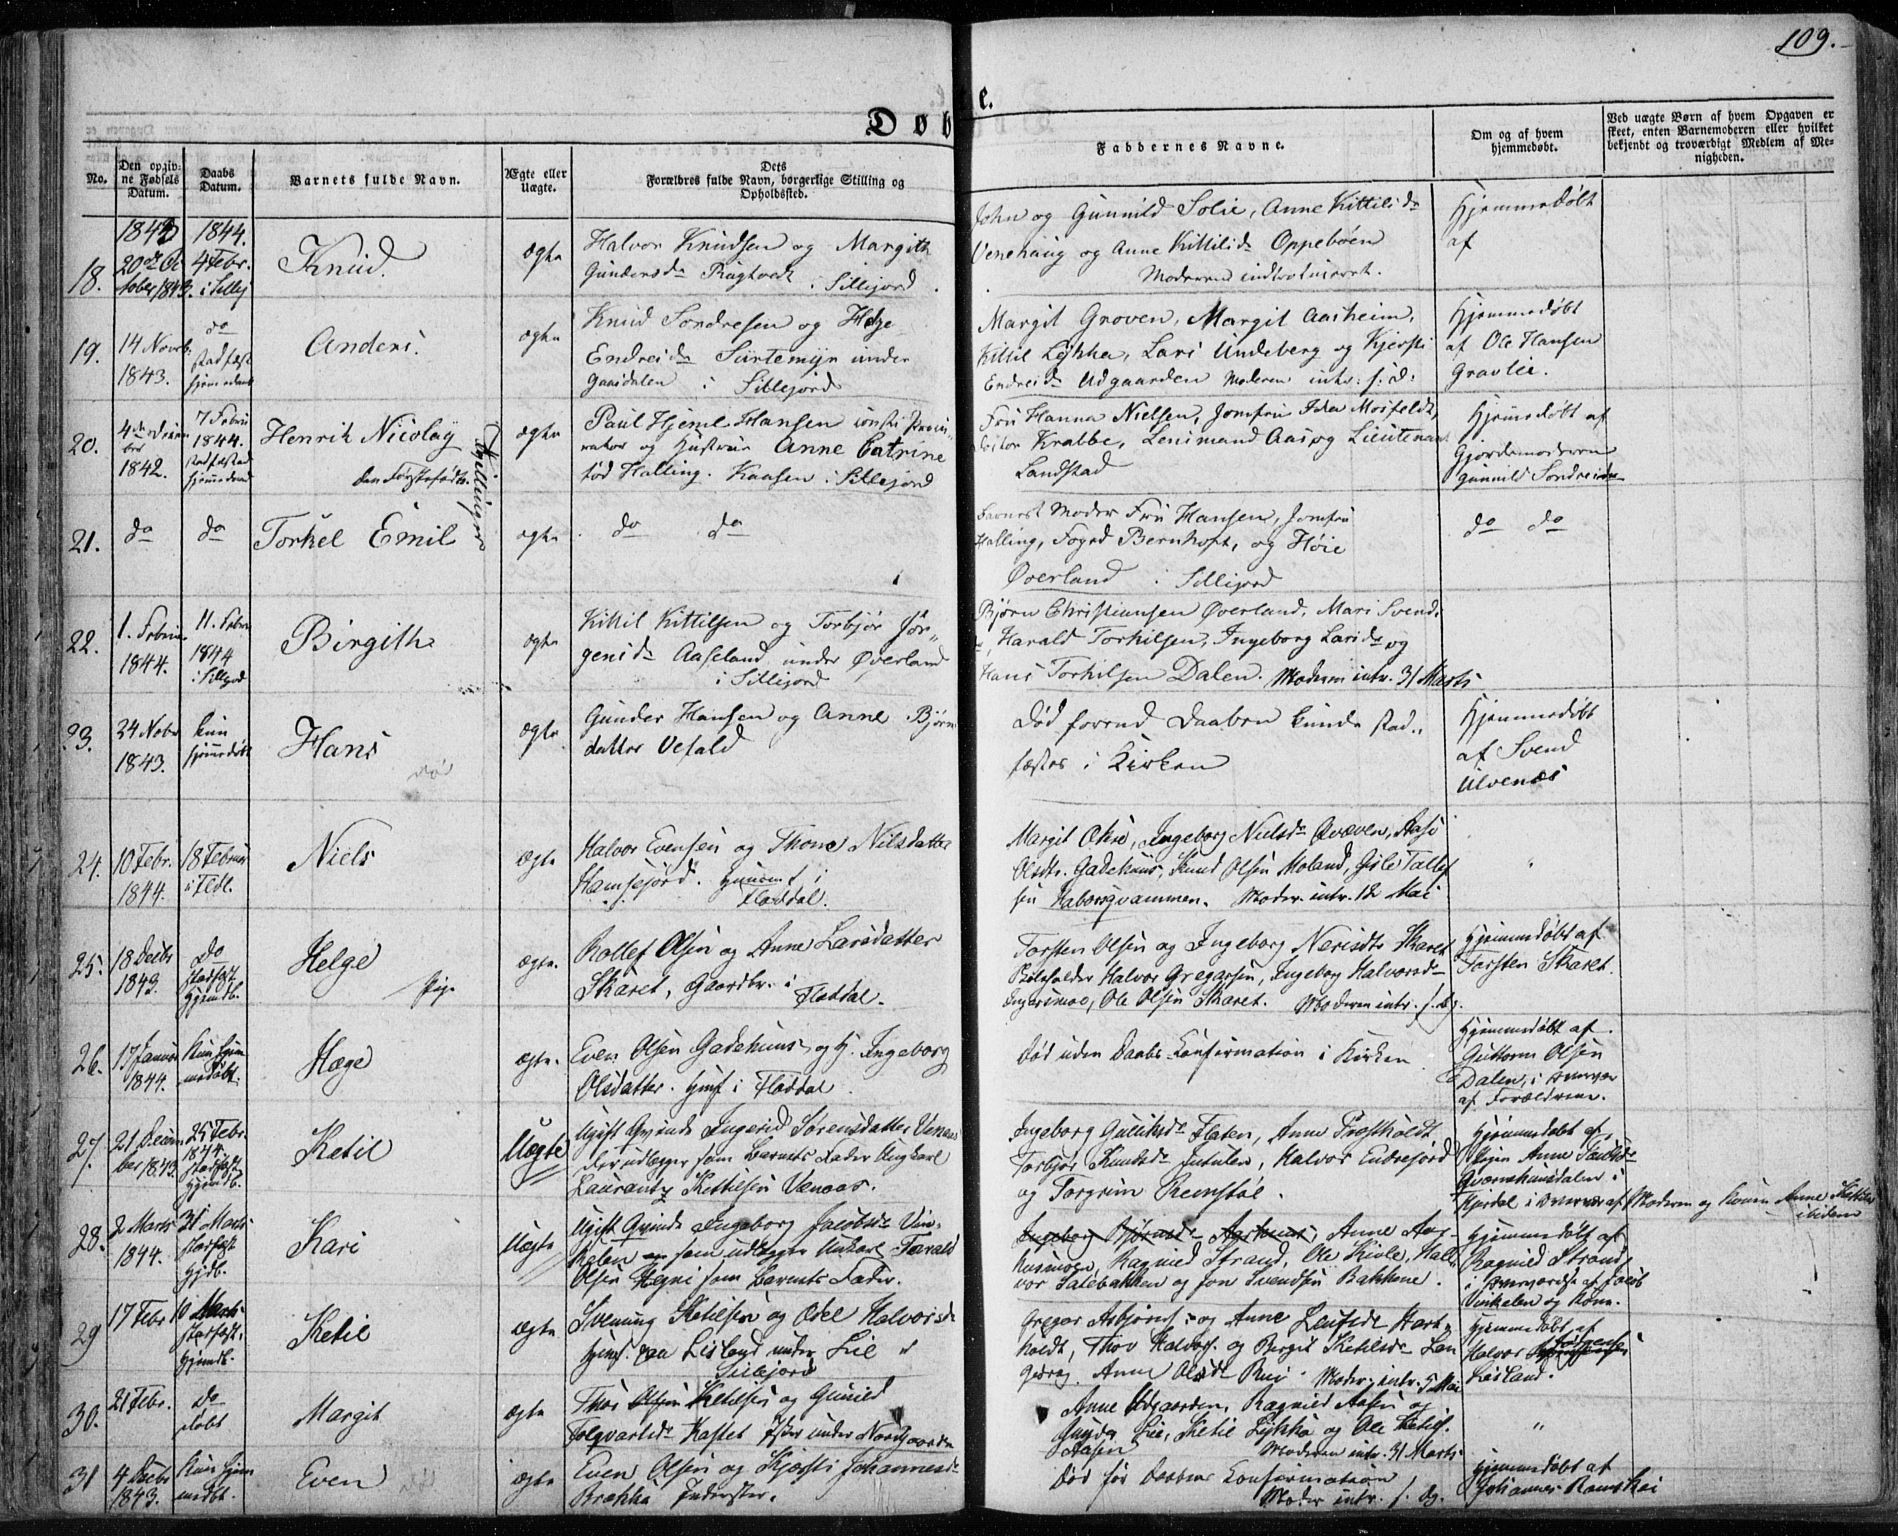 109.
Døbte.
No.
Den opgivne Fødsels Datum.
Daabs Datum.
Barnets fulde Navn.
Ægte eller Uægte.
Dets Forældres fulde Navn, borgerlige Stilling og Opholdssted.
Faddernes Navne.
Om og af hvem hjemmedøbt.
Ved uægte Børn af hvem Opgaven er skeet, enten Barnemoderen eller hvilket bekjendt og troværdigt Medlem af Menigheden.
18.
1843
20de October 1843.
1844.
4 Febr. i Sillej
Knud.
ægte
Halvor Knudsen og Margith
Gundersdr
i Sillejord
John og Gunnild Solie, Anne Kittilsdr
Venehaug og Anne Kittilsdr Oppebøen
Moderen introduceret.
Hjemmedøbt
af
19.
14 Novb.
1843.
do
stadfæst
hjemmedøbt
Anders.
ægte
Knud Sondresen og Helge
Endreisdr Surtemyr under
Gaasdalen i Sillejord
Margit Groven, Margit Aasheim,
Kittil Lykka, Lars Undeberg og Kjersti
Endreisdr Udgaarden Moderen intr: s: d:
Hjemmedøbt
af Ole Hansen
Gravlie.
20.
4de Decembr
1842.
7 Februar
1844.
stadfæstad
hjemmedøbt
Henrik Nicolay
den Førstefødte.
Tvillinger
ægte
Paul Hjeml Hansen const: Procurator
og Hustrue Anne Catrine
fød Halling. Kaasen i Sillejord
Fru Hanna Nielsen, Jomfru Ida Mosfeldt,
Doctor Krabbe, Lensmand Aas og Lieutenant
Landstad
Hjemedøbt af
Gjordemoderen
Gunnild Sondreisdr
21.
do
do
Torkel Emil
ægte
do do
Barnets Moder Fru Hansen, Jomfru
Halling, Foged Bernhoft, og Høie
Øverland i Sillejord
do do
22.
1. Februar
1844.
11. Febru
1844
i Sillejord
Birgith
ægte
Kittil Kittilsen og Torbjør Jørgensdr
Aaseland under Øverland
i Sillejord
Bjørn Christiansen Øverland, Mari Svendsdr,
Harald Torkilsen, Ingeborg Larsdr og
Hans Torkilsen Dalen. Moderen intr. 31 Marts
23.
24 Nobr
1843.
kun
hjemmedøbt
Hans
død
ægte.
Gunder Hansen og Anne Bjørndatter
Vefald
Død forend Daaben kunde stadfæstes
i Kirken
Hjemmedøbt
af Svend
Ulvenæs
24.
10 Febr.
1844.
18 Februar
i Fldl.
Niels
ægte
Halvor Evensen og Thone Nilsdatter
Hamsejord. i
Flatdal.
Margit Okse, Ingeborg Nielsdr Qvæven, Aase
Olsdtr. Gadehuus, Knud Olsen Moland, Gisle Tallefsen
Haborgqvammen. Moder. intr. 12 Mai
"
25.
18 Decbr
1843.
Do
stadfæst.
hjemdb.
Helge
Pige
ægte.
Rollef Olsen og Anne Larsdatter
Skaret, Gaardbr. i Flatdal.
Torsten Olsen og Ingeborg Nerisdtr Skaret
Halvor Gregarsen, Ingeborg Halvorsdr
Ingerimoe, Ole Olsen Skaret. Moderen intr. s. dg.
Hjemmedøbt af
Torsten Skaret.
26.
17 Januar
1844.
Kun hjemmedøbt.
Hæge
ægte.
Even Olsen Gadehuus og H. Ingeborg
Olsdatter. Husf. i Flatdal.
Død uden Daabs-Confirmation i Kirken
Hjemmedøbt af
Guttorm Olsen
Dalen, i
af Forældrene.
27.
21 December 1843.
25 Febr.
1844.
stadfæst
hjemdb.
Ketil
Uægte
Ugift Qvinde Ingerid Sørensdatter Venaas
der udlægger som Barnets Fader Ungkarl
Laurantz Kittilsen Venaas.
Ingeborg Gulliksdr Flaten, Anne Prestholdt
Torbjør Knudsdr, Halvor Endrejord
og Torgrim Remstøl.
Hjemmedøbt af
Pigen Anne
Qvernhuusdalen i
Hjerdal i af Moderen og Konen Anne Kittilsd
ibidem
28.
2 Marts
1844.
31 Marts
stadfæst
hjdb.
Kari
Uægte
Ugift Qvinde Ingeborg Jacobsdr Vinkelen
som udlægger Unkarl Tarald
Olsen som Barnets Fader.
Anne Aarhusmoen,
Ragnild Strand, Ole Kivle, Halvor
Salebakken og Jon Svendsen Bakkene.
Hjemmedøbt af
Ragnild Strand
i af Jacob
Vinkelen og Kone.
29
17 Febr
10 Marts
stadfæst.
hjemdb.
Ketil
ægte
Svenung Ketilsen og Osel Halvorsdr
Husf. paa Lisland under Lie i
Sillejord
Gregar Asbjørns: og Anne Leifsdr Hartholdt,
Thor Halvors. og Bergit Ketilsdr
Anne Olsdr Moder. intr. 5 Mai
Hjemmedøbt af
Halvor
Lisland.
30.
21 Febr.
Do
døbt
Margit
ægte
Thor Ketilsen og Gunild
Folqvarsdr Kasset Jster under Nordgaarden
Anne Udgaarden, Ragnild Aasen og
Lie, Ketil Lykka og Ole Ketils.
Aasen Moderen intr. 31 Marts
"
31
4 Decbr
1843.
Kun hjemmedbt.
Even
ægte
Even Olsen og Kjersti Johannesdr
Brække Inderster.
Død før Daabens Confirmation
Moder intr. s. dg.
Hjemmedøbt af
Johannes Ramskei